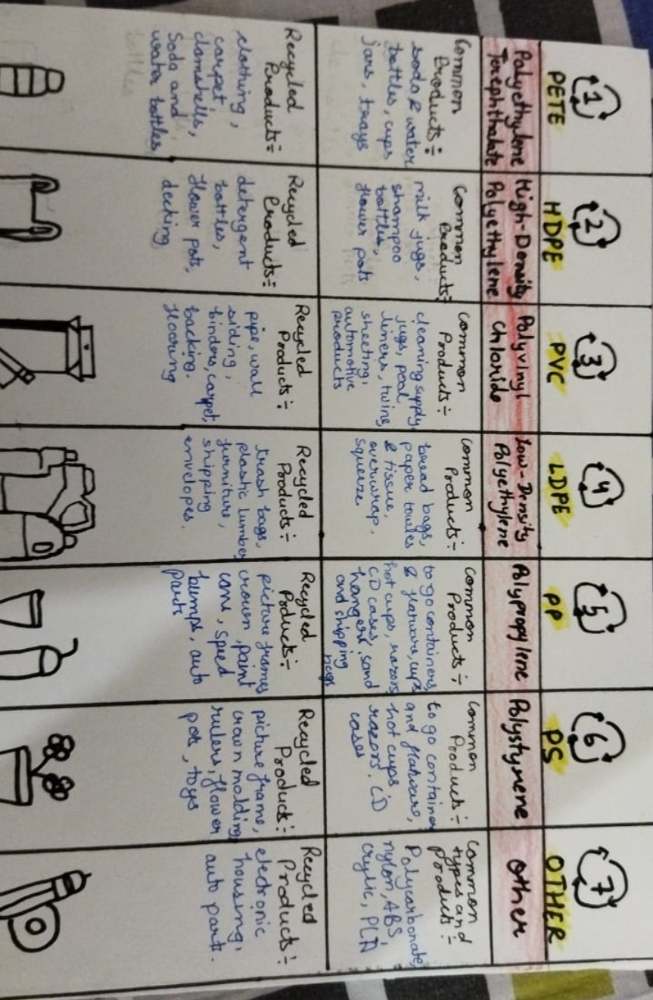 1
PETE
Polyethylene
Terephthalate
Common
Products:-
soda & water
bottles, cups
jars, trays
Recycled
Products:-
clothing,
carpet,
clamshells,
Soda and
water bottles
2
HDPE
High-Density
Polyethylene
Common
Products:-
milk jugs,
shampoo
bottles,
flower pots
Recycled
Products:-
detergent
bottles,
flower pots,
decking
3
PVC
Polyvinyl
Chloride
Common
Products:-
cleaning supply
jugs, pool
liners, twins,
sheeting,
automotive
products
Recycled
Products:-
pipe, wall
siding,
binders, carpet,
backing,
flooring
4
LDPE
Low-Density
Polyethylene
Common
Products:-
bread bags,
paper towles
& tissue,
overwrap,
squeeze
Recycled
Products:-
trash bags,
plastic lumber
furniture,
shipping
envelopes.
5
PP
Polypropylene
Common
Products:-
to go containers
& flatware, cups
hot cups, razors
CD cases,
hangers, sand
and shipping
bags
Recycled
Products:-
picture frames
crown, paint
cone, speed
bumps, auto
parts
6
PS
Polystyrene
Common
Products:-
to go container
and flatware,
hot cups,
razors, CD
cases
Recycled
Product:-
picture frame,
crown molding
rulers, flower
pots, toys
7
OTHER
Other
Common
types and
Products:-
Polycarbonate,
nylon, ABS,
crylic, PLA
Recycled
Products:-
electronic
housing,
auto part.